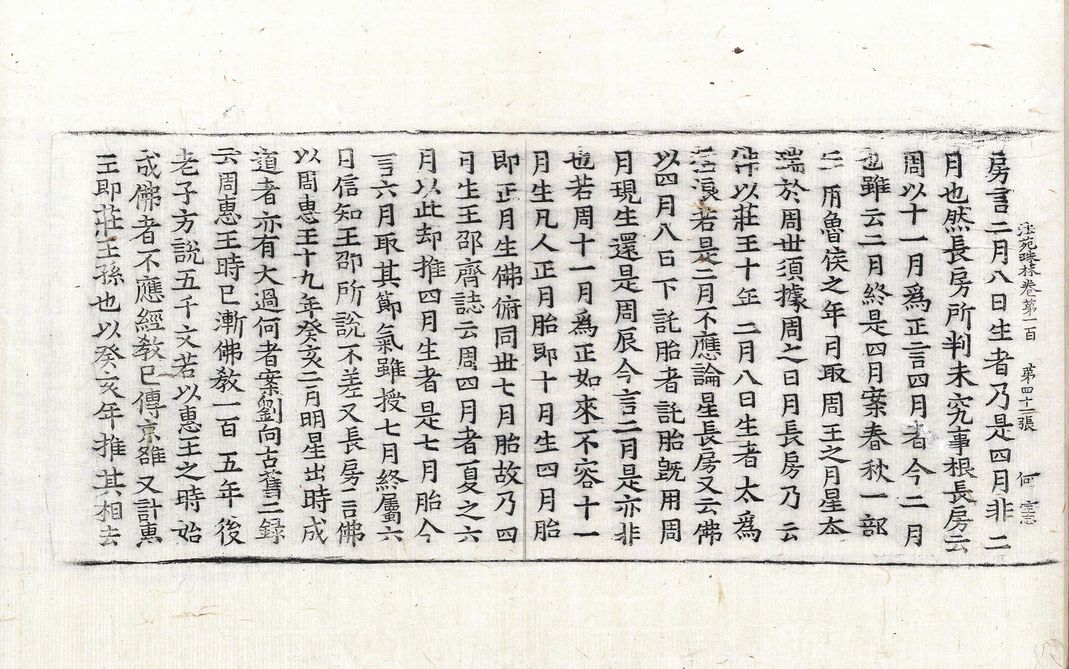 法苑珠林卷第一百 第四十二張 何
房言二月八日生者乃是四月非二
月也然長房所判未究事根長房云
周以十一月爲正言四月者今二月
也雖云二月終是四月案春秋一部
年用魯侯之年月取周王之月星太
瑞於周世須據周之日月長房乃云
佛以莊王十年二月八日生者太爲
浪若是二月不應論星長房又云佛
以四月八日下託胎者託胎旣用周
月現生還是周辰今言二月是亦非
也若周十一月爲正如來不容十一
月生凡人正月胎即十月生四月胎
即正月生佛俯同世七月胎故乃四
月生王邵齊誌云周四月者夏之六
月以此却推四月生者是七月胎今
言六月取其節氣雖授七月終屬六
日信知王邵所說不差又長房言佛
以周惠王十九年癸亥二月明星出時成
道者亦有大過何者案劉向古舊二録
云周惠王時已漸佛敎一百五年後
老子方說五千文若以惠王之時始
成佛者不應經敎已傳京雒又計惠
王即莊王孫也以癸亥年推其相去